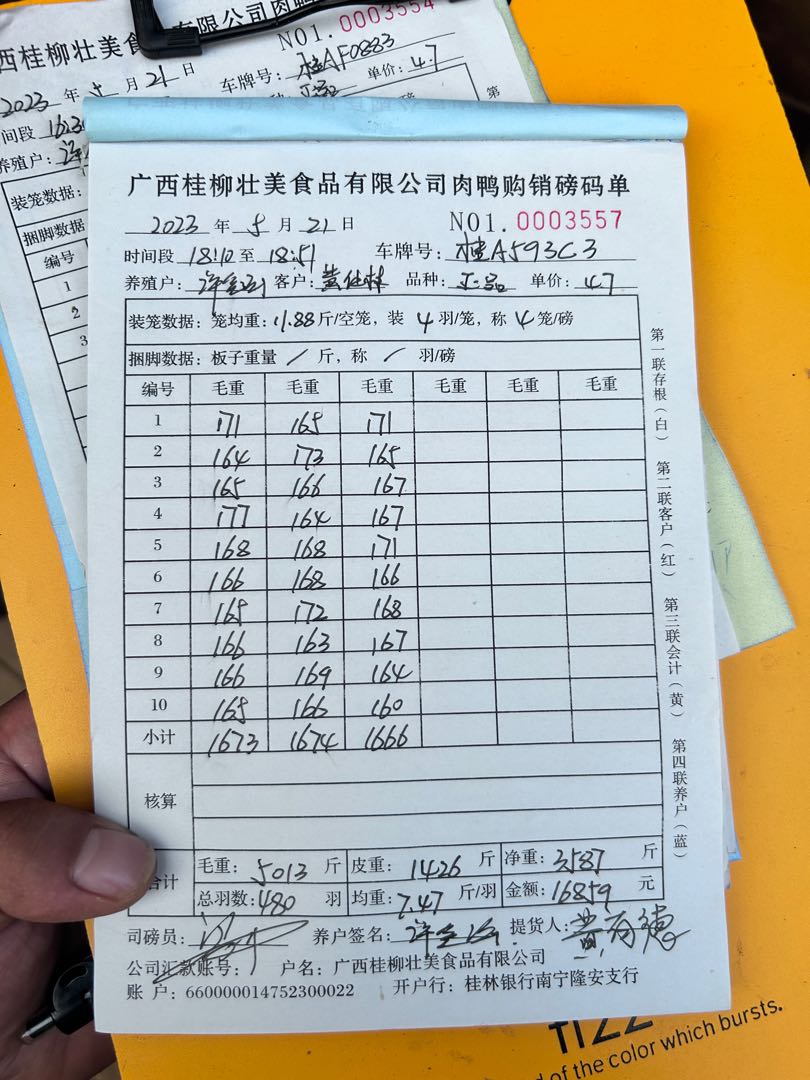 西桂柳壮美食品有限公司肉鸭
NO1.0003554
2023 年 5 月 21 日 车牌号: 桂AF0883
单价: 4.7
间段
养殖户:
装笼数据:
捆脚数据
编号
1
2
3
第
广西桂柳壮美食品有限公司肉鸭购销磅码单
2023 年 5 月 21 日 NO1.0003557
时间段 18:10 至 18:51 车牌号: 桂A593C3
养殖户: 客户: 黄仕林 品种: 正品 单价: 4.7
装笼数据: 笼均重: 11.88 斤/空笼, 装 4 羽/笼, 称 4 笼/磅
捆脚数据: 板子重量 / 斤, 称 / 羽/磅
编号 毛重 毛重 毛重 毛重 毛重 毛重
1 171 165 171
2 164 173 165
3 165 166 167
4 177 164 167
5 168 168 171
6 166 168 166
7 165 172 168
8 166 163 167
9 166 169 164
10 165 166 160
小计 1673 1674 1666
核算
合计 毛重: 5013 斤 皮重: 1426 斤 净重: 3587 斤
总羽数: 480 羽 均重: 7.47 斤/羽 金额: 16859 元
司磅员: 养户签名: 提货人:
公司汇款账号: 户名: 广西桂柳壮美食品有限公司
账 户: 660000014752300022 开户行: 桂林银行南宁隆安支行
第一联存根(白) 第二联客户(红) 第三联会计(黄) 第四联养户(蓝)
of the color which bursts.